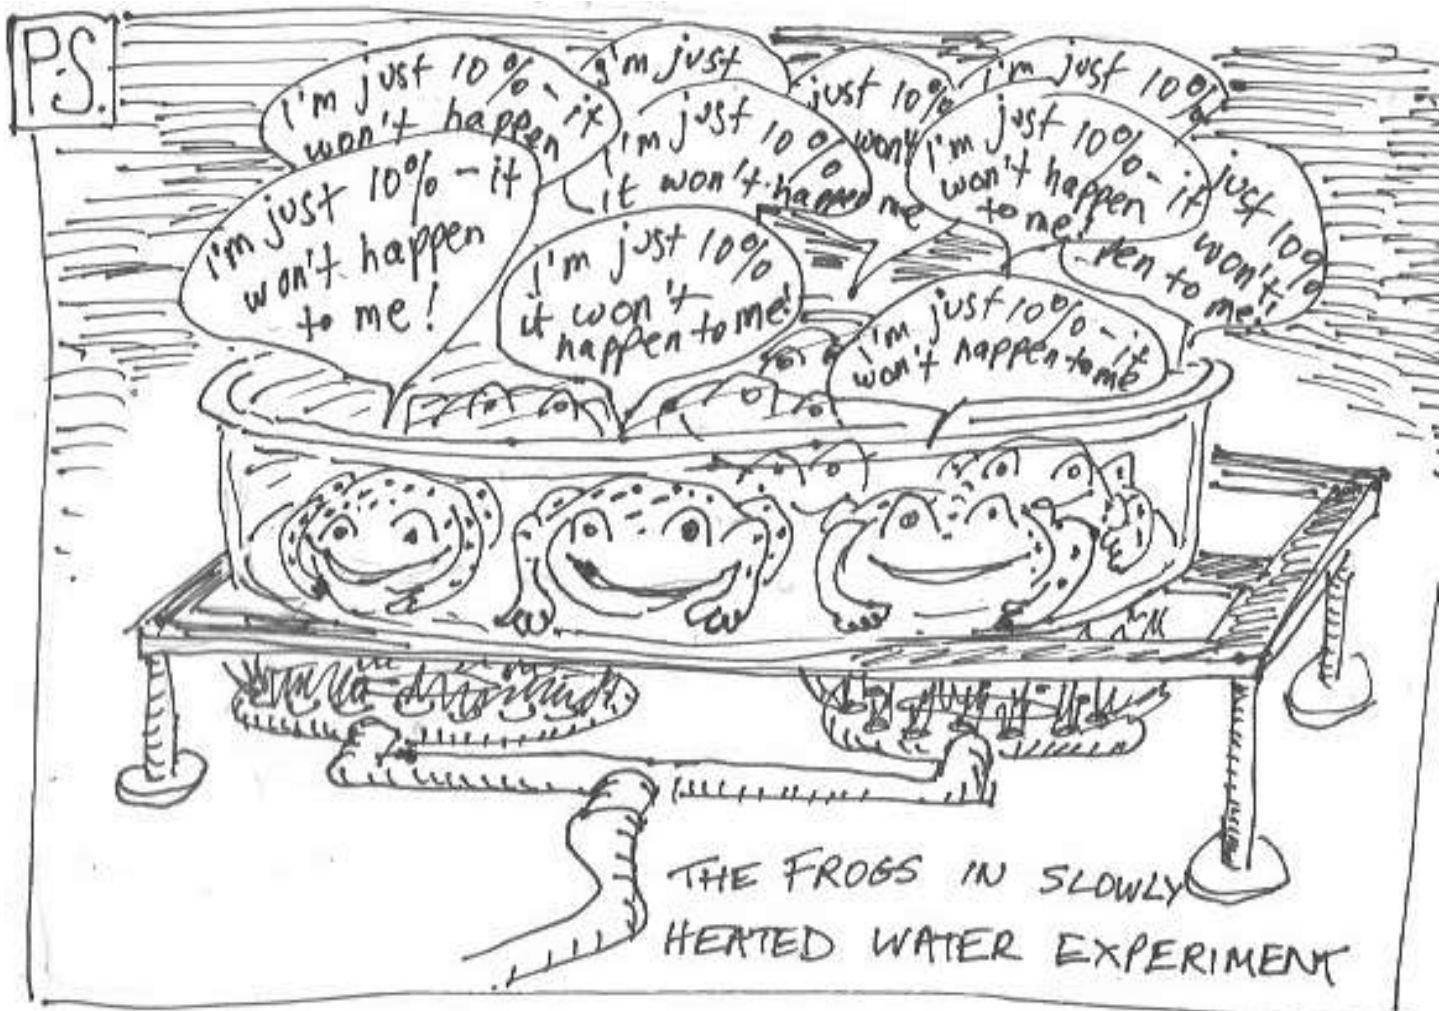 P.S.
I'm just 10% - it
won't happen
I'm just
just 10%
won't
I'm just 10%
I'm just 10%
it won't happen
me
I'm just 10% - it
won't happen
to me!
just 10%
won't
pen to me!!
I'm just 10% - it
won't happen
to me!
I'm just 10%
it won't
happen to me!
I'm just 10% - it
won't happen to me
THE FROGS IN SLOWLY
HEATED WATER EXPERIMENT